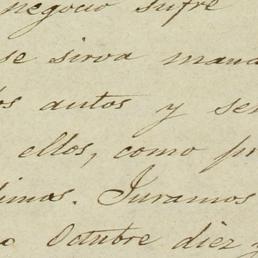 negocio sufre
se sirva mand
os autos y se
ellos, como pr
dimos. Juramos
Octubre diez y